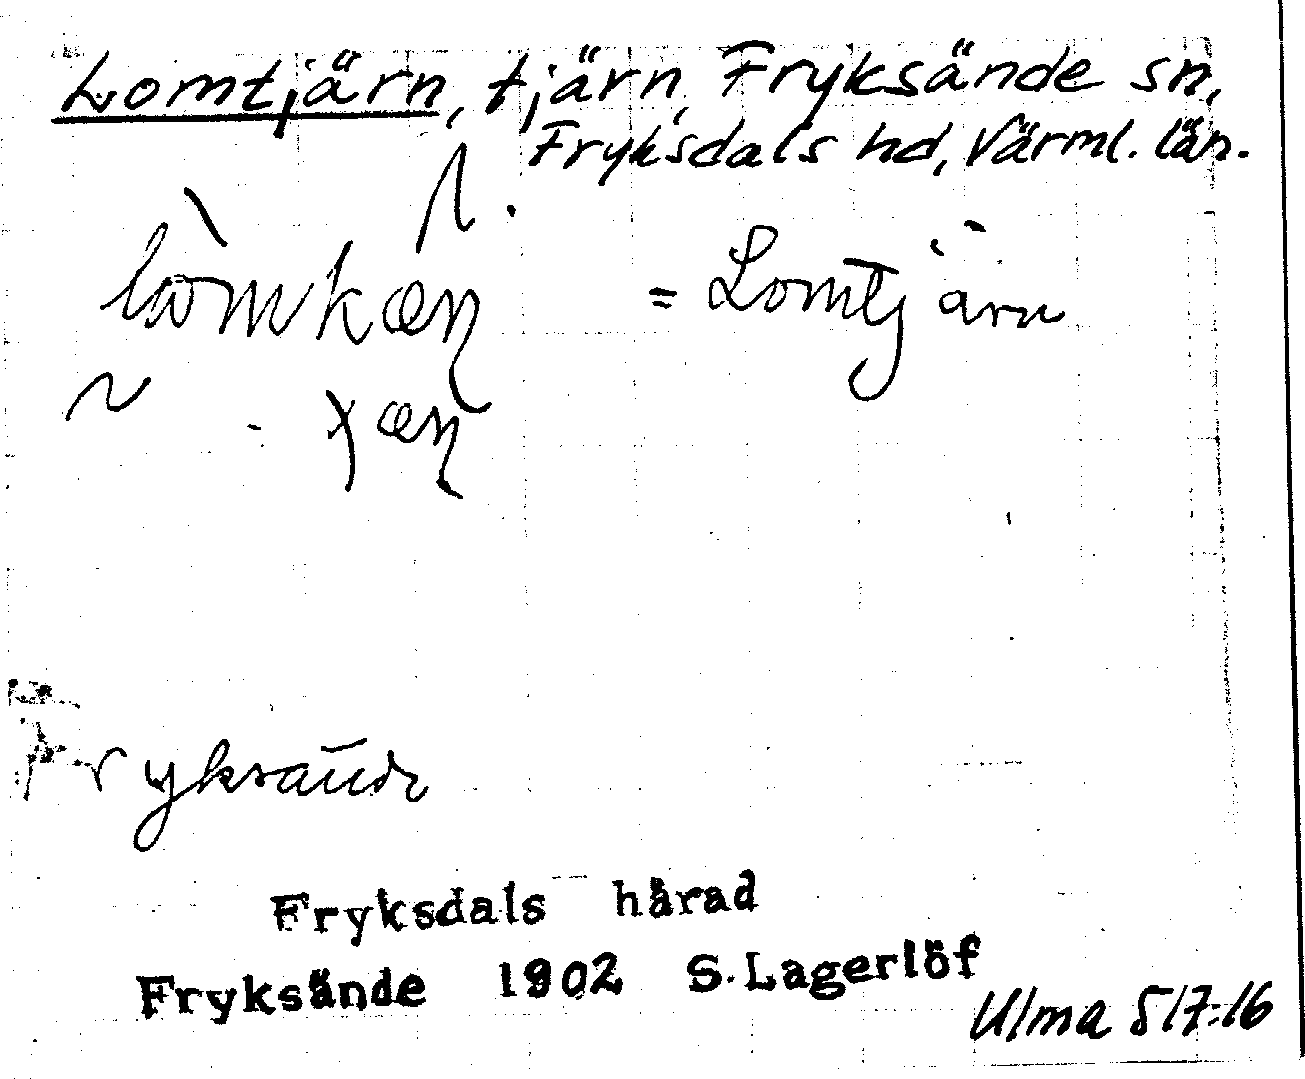 Lomtjärn, tjärn, Fryksände sn,
Fryksdals hd, Värml. län.
= Lomtjärn
Fryksände
Fryksdals härad
Fryksände 1902 S. Lagerlöf
Ulma 517:16